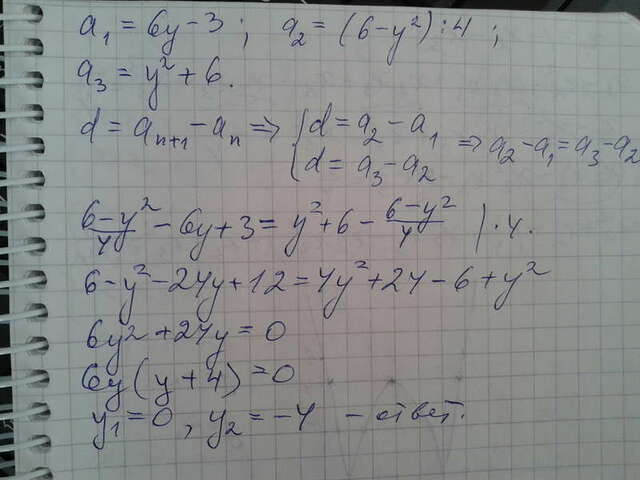 a₁ = 6y - 3 ; a₂ = (6 - y²) : 4 ;
a₃ = y² + 6.
d = aₙ₊₁ - aₙ ⇒ { d = a₂ - a₁ ; d = a₃ - a₂ ⇒ a₂ - a₁ = a₃ - a₂
(6 - y²)/4 - 6y + 3 = y² + 6 - (6 - y²)/4 | · 4.
6 - y² - 24y + 12 = 4y² + 24 - 6 + y²
6y² + 24y = 0
6y(y + 4) = 0
y₁ = 0, y₂ = -4 - ответ.